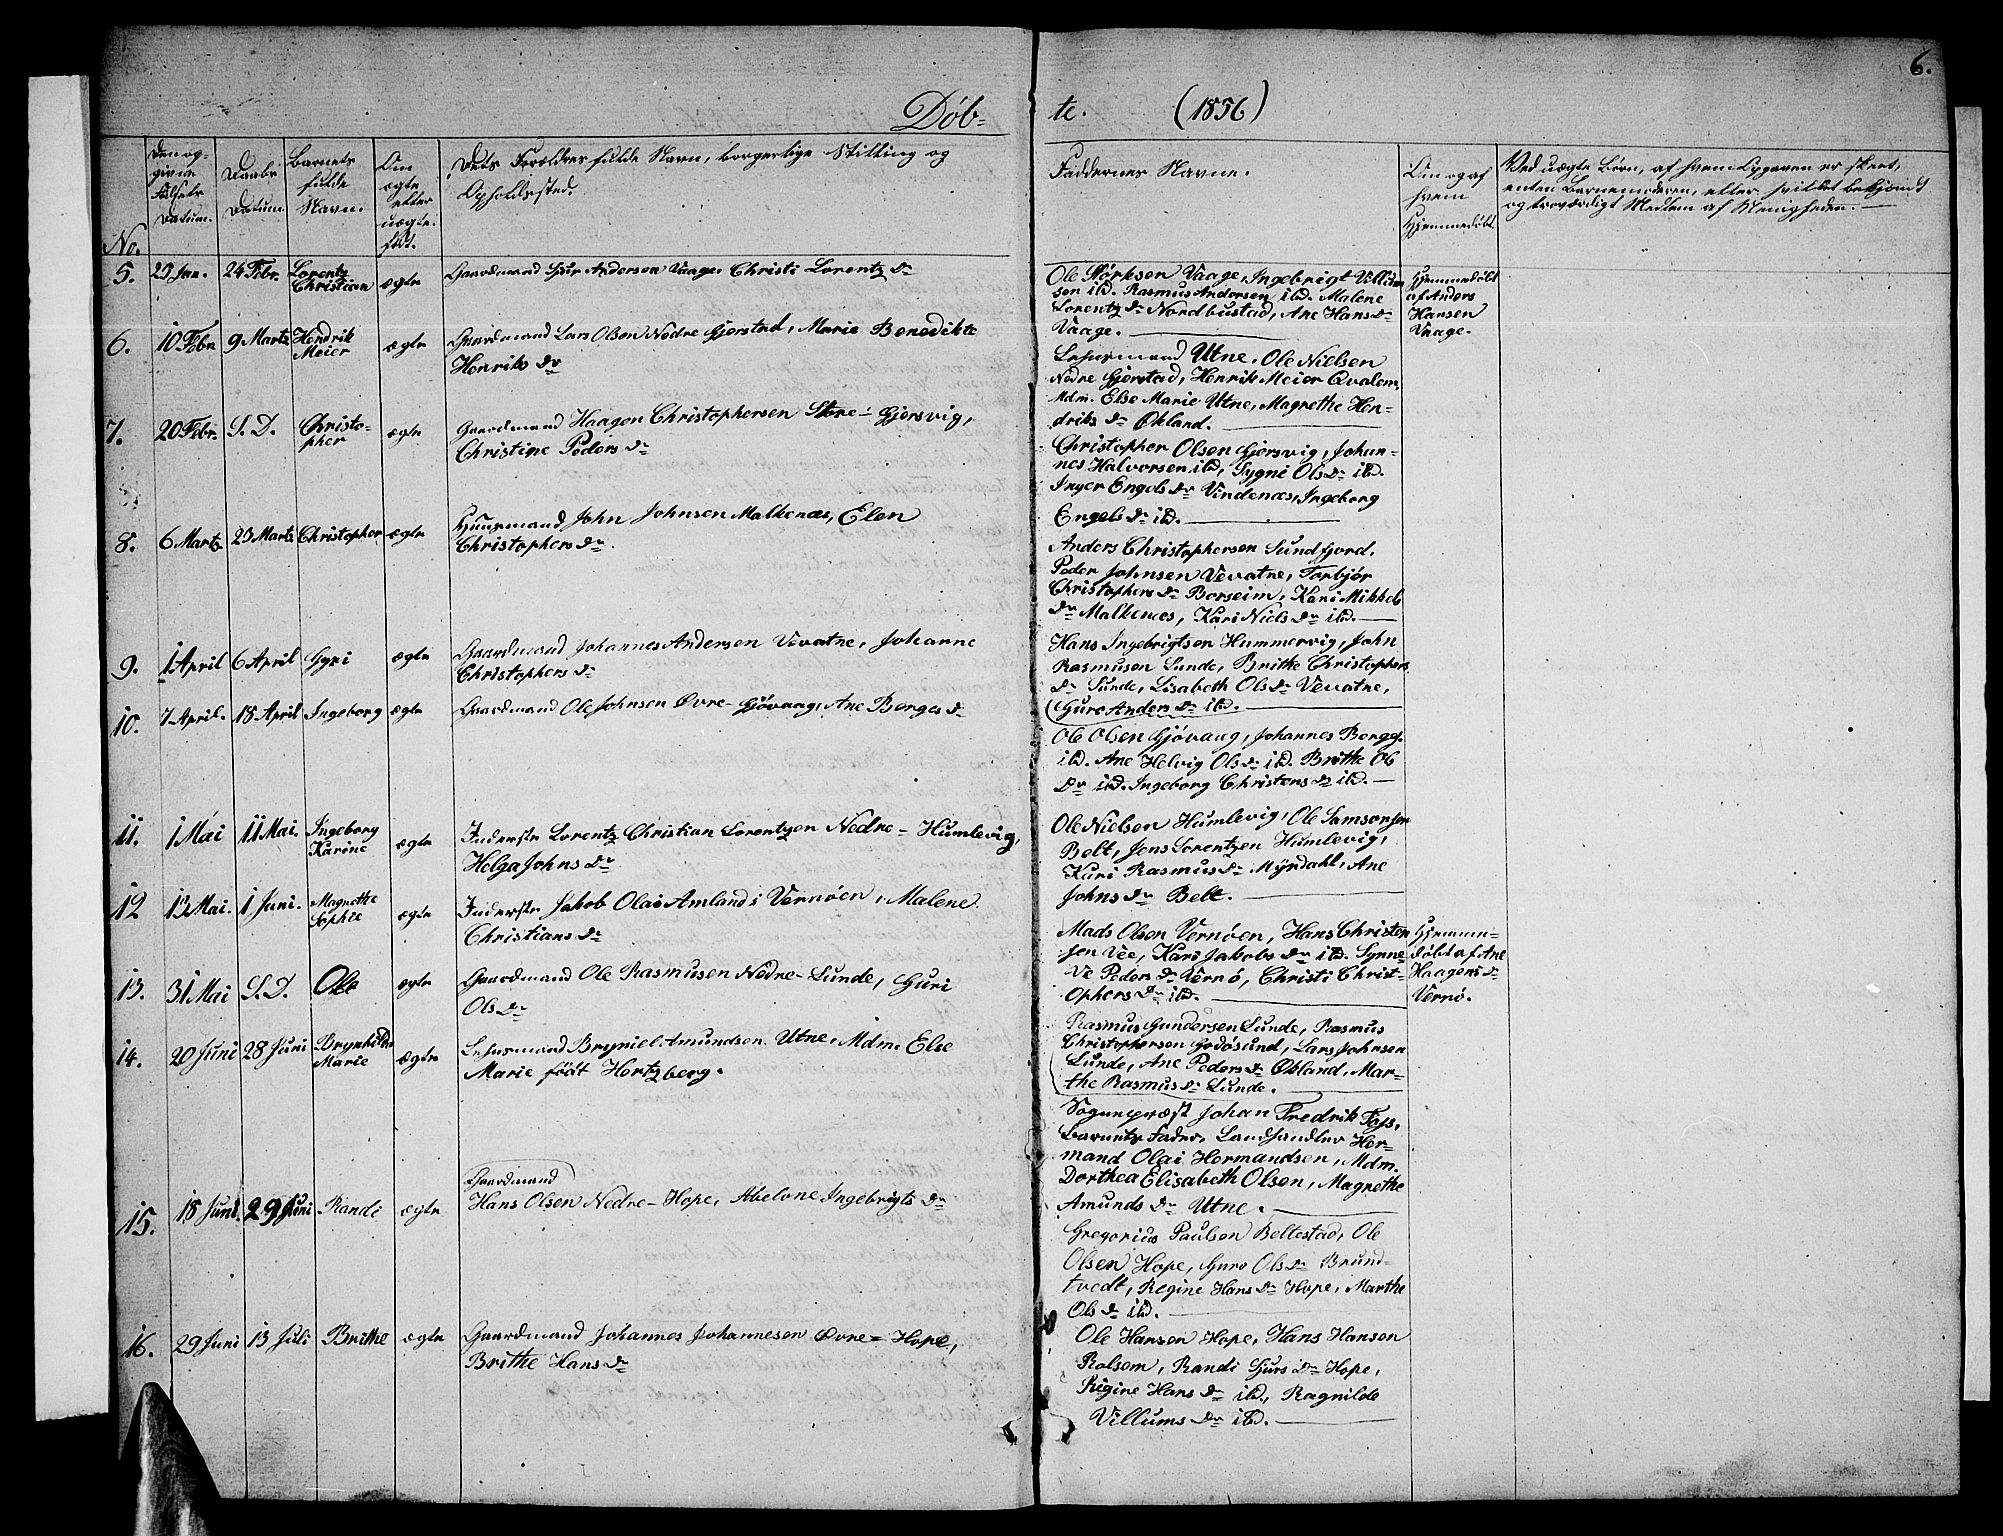 6.
Døb- te. (1856)
No.
Den op-
givne
Fødsels
Datum.
Daabs
Datum
Barnets
fulde
Navn.
Om
ægte
eller
uægte
født.
Dets Forældres fulde Navn, borgerlige Stilling og
Opholdssted.
Faddernes Navne.
Om og af
hvem
Hjemmedøbt
Ved uægte Børn, af hvem Opgaven er skeet,
enten Barnemoderen, eller hvilket bekjendt
og troværdigt Medlem af Menigheden.
5. 23 Jan. 24 Febr. Lorentz
Christian ægte
Gaardmand Sjur Andersen Vaage. Christi Lorentz Dr
Ole Størksen Vaage, Ingebrigt Villum
sen ibd. Rasmus Andersen ibd. Malene
Lorentz Dr Nordbustad, Ane Hans Dr
Vaage.
Hjemmedøbt
af Anders
Hansen
Vaage.
6. 10 Febr 9 Martz Hendrik
Meier ægte
Gaardmand Lars Olsen Nedre Gjerstad, Marie Benedikte
Henriks Dr
Lensmand Utne. Ole Nielsen
Nedre Gjerstad, Henrik Meier Qvalem,
Mdm. Else Marie Utne, Magrethe Hen-
driks Dr Økland.
7. 20 Febr. S. D. Christo-
pher ægte
Gaardmand Haagen Christophersen Store-Gjersvig,
Christine Peders Dr
Christopher Olsen Gjersvig, Johan-
nes Halvorsen ibd, Sygni Ols Dr ibd.
Inger Engels Dr Vindenæs, Ingeborg
Engels Dr ibd.
8. 6 Martz 23 Martz Christopher ægte
Huusmand John Johnsen Malkenæs, Elen
Christophers Dr.
Anders Christophersen Sundfjord.
Peder Johnsen Vevatne, Torbjør
Christophers Dr Borseim, Kari Mikkels
Dr Malkenæs, Kari Niels Dr ibd.
9. 1 April 6 April Gyri ægte
Gaardmand Johannes Andersen Vevatne, Johanne
Christophers Dr
Hans Ingebrigtsen Hummervig, John
Rasmusen Lunde, Brithe Christophers
Dr Sunde, Lisabeth Ols Dr Vevatne,
Guro Anders Dr ibd.
10. 7 April. 18 April Ingeborg ægte
Gaardmand Ole Johnsen Øvre-Gjøvaag, Ane Børges Dr
Ole Olsen Gjøvaag, Johannes Børges.
ibd. Ane Helvig Ols Dr ibd. Brithe Ols
Dr ibd. Ingeborg Christens Dr ibd.
11. 1 Mai 11 Mai. Ingeborg
Karine ægte
Inderste Lorentz Christian Lorentzen Nedre-Humlevig,
Helga Johns Dr
Ole Nielsen Humlevig, Ole Samsonsen
Belt, Jens Lorentzen Humlevig,
Kari Rasmus Dr Myrdahl, Ane
Johns Dr Belt.
12 13 Mai. 1 Juni. Magrethe
Sophie ægte
Inderste Jakob Olai Amland i Vernøen, Malene
Christians Dr
Mads Olsen Vernøen, Hans Christen
sen Vee, Kari Jakobs Dr ibd. Synne-
ve Peders Dr Vernø, Christi Christ-
ophers Dr ibd.
Hjemme-
døbt af Ane
Haagens Dr
Vernø.
13. 31 Mai S. D. Ole ægte
Gaardmand Ole Rasmusen Nedre-Lunde, Guri
Ols Dr
Rasmus Gundersen Lunde, Rasmus
Christophersen Godøsund, Lars Johnsen
Lunde, Ane Peders Dr Økland, Mar-
the Rasmus Dr Lunde.
14. 20 Juni 28 Juni Brynhilde
Marie ægte
Lensmand Bryniel Amundsen Utne, Mdm. Else
Marie født Hertzberg.
Sognepræst Johan Fredrik
Barnets Fader, Landhandler Her-
mand Olai Hermandsen, Mdm.
Dorthea Elisabeth Olsen, Magrethe
Amunds Dr Utne.
15. 18 Juni. 29 Juni Randi ægte
Gaardmand
Hans Olsen Nedre-Hope, Abelone Ingebrigts Dr
Gregorius Paulsen Beltestad, Ole
Olsen Hope, Guro Ols Dr Brund-
tvedt, Regine Hans Dr Hope, Marthe
Ols Dr ibd.
16. 29 Juni 13 Juli Brithe ægte
Gaardmand Johannes Johannesen Øvre-Hope,
Brithe Hans Dr
Ole Hansen Hope, Hans Hansen
Rolsem, Randi Sjurs Dr Hope,
Regine Hans Dr ibd., Ragnilde
Villums Dr ibd.